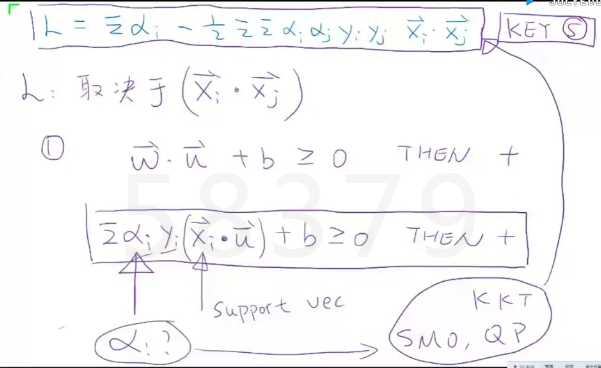 L = Σαᵢ - ½ΣΣαᵢαⱼyᵢyⱼ x⃗ᵢ·x⃗ⱼ KEY ⑤
L: 取决于(x⃗ᵢ·x⃗ⱼ)
① w⃗·u⃗ + b ≥ 0 THEN +
Σαᵢyᵢ(x⃗ᵢ·u⃗) + b ≥ 0 THEN +
support vec
KKT
αᵢ? SMO, QP
58379